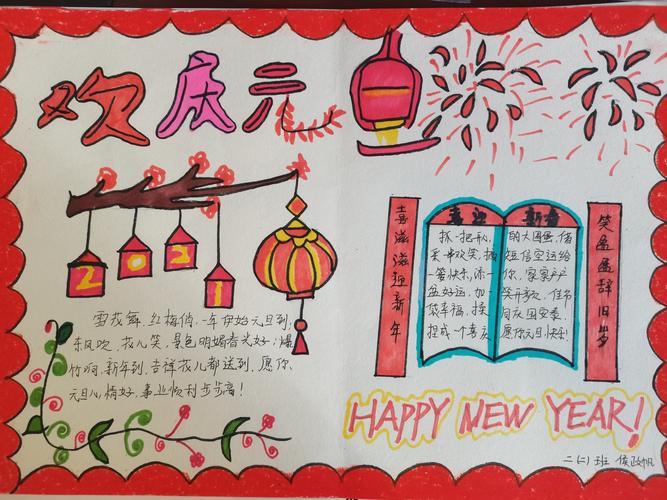 欢庆元旦
2021
雪花舞,红梅俏,一年伊始元旦到;
东风吹,花儿笑,景色明媚春光好;爆
竹响,新年到,吉祥花儿都送到,愿你
元旦心情好,事业顺利步步高!
喜滋滋迎新年
喜迎 新春
抓一把开心,
采一串欢笑,
一签快乐,添一
盆好运,加一
袋幸福,揉
捏成一个喜庆
的大圆蛋,借
短信空运给
你,家家户户
笑开新花,佳节
同庆国安泰,
愿你元旦快乐!
笑盈盈辞旧岁
HAPPY NEW YEAR!
二(二)班 侯政帆